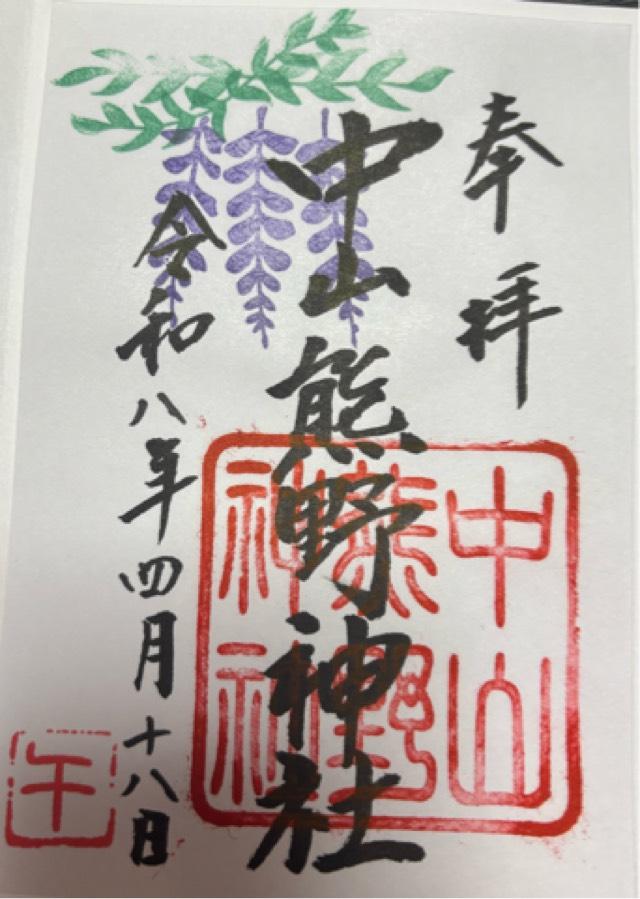 奉拝
中山熊野神社
令和八年四月十八日
中山
熊野
神社
午